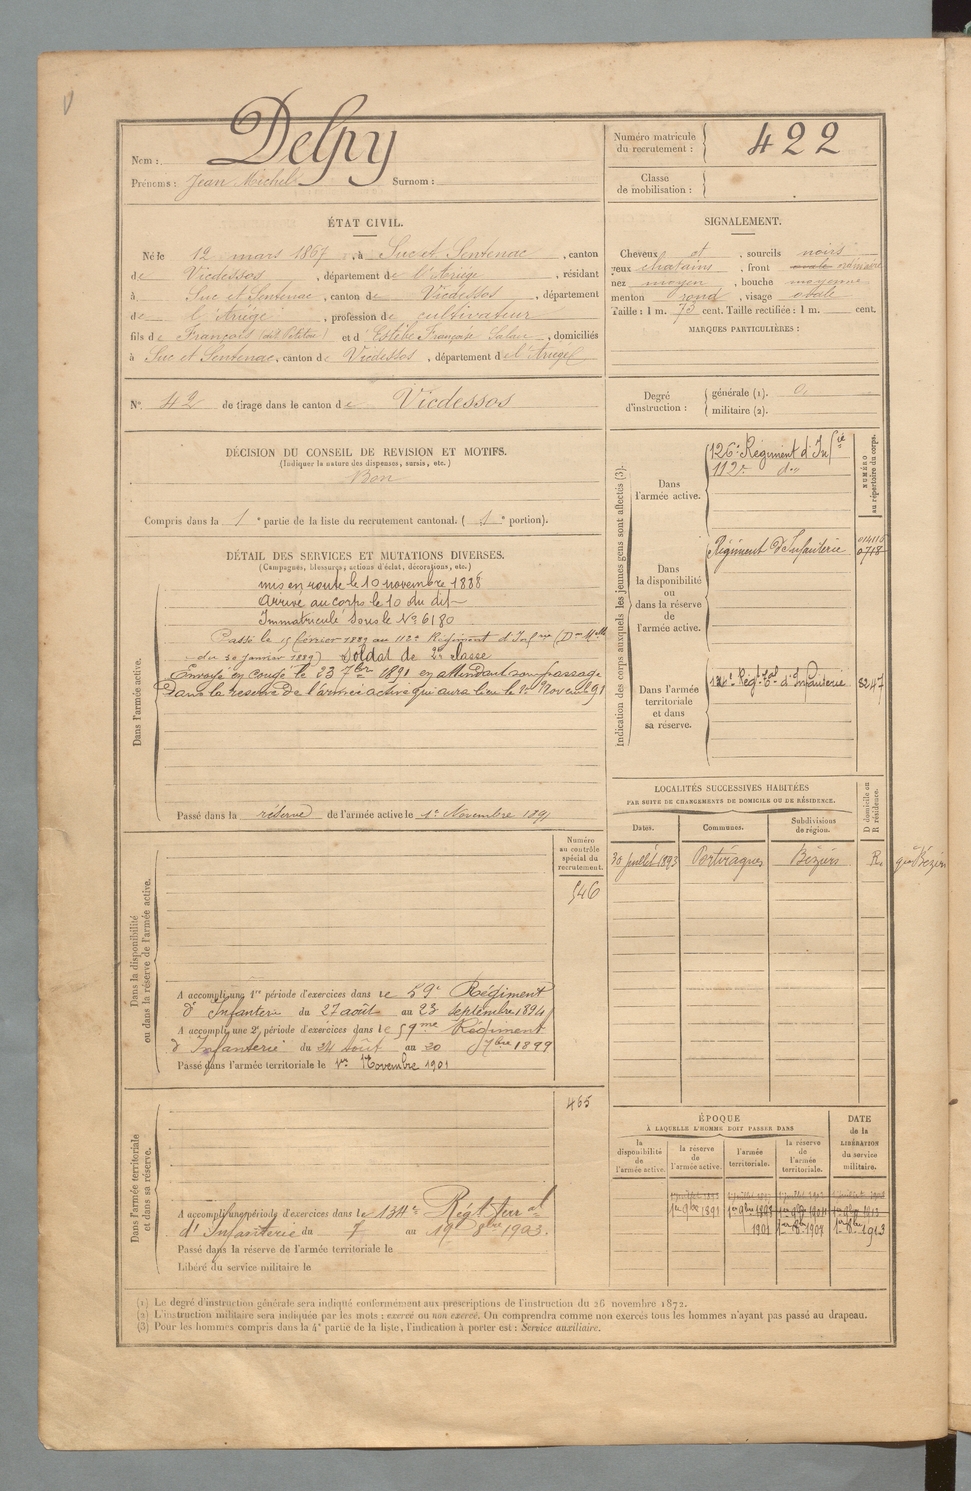 Nom : Delpy
Prénoms : Jean Michel Surnom :
Numéro matricule du recrutement : 422
Classe de mobilisation :
ÉTAT CIVIL.
Né le 12 mars 1867, à Suc et Sentenac, canton
de Vicdessos, département de l'Ariège, résidant
à Suc et Sentenac, canton de Vicdessos, département
de l'Ariège, profession de cultivateur
fils de François et d'Estèbe Françoise, domiciliés
à Suc et Sentenac, canton de Vicdessos, département de l'Ariège
N° 42 de tirage dans le canton de Vicdessos
SIGNALEMENT.
Cheveux et, sourcils noirs
yeux chatains, front ordinaire
nez moyen, bouche moyenne
menton rond, visage ovale
Taille : 1 m. 73 cent. Taille rectifiée : 1 m. cent.
MARQUES PARTICULIÈRES :
Degré d'instruction : générale (1). 0
militaire (2).
DÉCISION DU CONSEIL DE REVISION ET MOTIFS.
(Indiquer la nature des dispenses, sursis, etc.)
Bon
Compris dans la 1e partie de la liste du recrutement cantonal. (1e portion).
DÉTAIL DES SERVICES ET MUTATIONS DIVERSES.
(Campagnes, blessures, actions d'éclat, décorations, etc.)
Dans l'armée active.
mis en route le 10 novembre 1888
Arrivé au corps le 10 du dit
Immatriculé sous le No 6180
Passé le 15 février 1889 au 112e Régiment d'Infrie (Don Mlle
du 30 janvier 1889) Soldat de 2e classe
Envoyé en congé le 23 7bre 1891 en attendant son passage
dans la réserve de l'armée active qui aura lieu le 1er Novemb 91
Passé dans la réserve de l'armée active le 1er Novembre 1891
Indication des corps auxquels les jeunes gens sont affectés (3).
NUMÉRO au répertoire du corps.
Dans l'armée active.
126e Régiment d'Infie
112e do
Dans la disponibilité ou dans la réserve de l'armée active.
Régiment d'Infanterie
0718
Dans l'armée territoriale et dans sa réserve.
Régt Tal d'Infanterie
3247
LOCALITÉS SUCCESSIVES HABITÉES
PAR SUITE DE CHANGEMENTS DE DOMICILE OU DE RÉSIDENCE.
Dates. Communes. Subdivisions de région. D domicile ou R résidence.
30 juillet 1893 Portiragnes Béziers R. gie Béziers
Dans la disponibilité ou dans la réserve de l'armée active.
Numéro au contrôle spécial du recrutement.
546
A accompli une 1re période d'exercices dans le 59e Régiment
d'Infanterie du 27 août au 23 septembre 1894
A accompli une 2e période d'exercices dans le 59me Régiment
d'Infanterie du 24 Août au 20 7bre 1899
Passé dans l'armée territoriale le 1er Novembre 1901
Dans l'armée territoriale et dans sa réserve.
465
A accompli une période d'exercices dans le 134e Régt Terral
d'Infanterie du 7 au 19 8bre 1903.
Passé dans la réserve de l'armée territoriale le
Libéré du service militaire le
ÉPOQUE
À LAQUELLE L'HOMME DOIT PASSER DANS
la disponibilité de l'armée active. la réserve de l'armée active. l'armée territoriale. la réserve de l'armée territoriale.
DATE de la LIBÉRATION du service militaire.
1er 9bre 1891
1901 1907 1913
(1) Le degré d'instruction générale sera indiqué conformément aux prescriptions de l'instruction du 26 novembre 1872.
(2) L'instruction militaire sera indiquée par les mots : exercé ou non exercé. On comprendra comme non exercés tous les hommes n'ayant pas passé au drapeau.
(3) Pour les hommes compris dans la 4e partie de la liste, l'indication à porter est : Service auxiliaire.